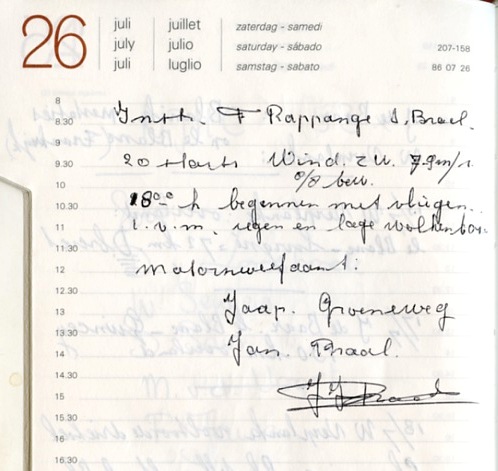 26
juli juillet zaterdag - samedi
july julio saturday - sábado 207-158
juli luglio samstag - sabato 86 07 26
8
8.30 Instr. F Rappange J. Braal.
9
9.30 20 starts Wind. ZW. 7-9 m/s
8/8 bew.
10
10.30 18⁰⁰ h beginnen met vliegen.
11 i.v.m. regen en lage wolkenbas
11.30
12 Motorzweefvaart:
12.30
13 Jaap. Groeneweg
13.30
14 Jan. Braal.
14.30
15 JJBraal
15.30
16
16.30